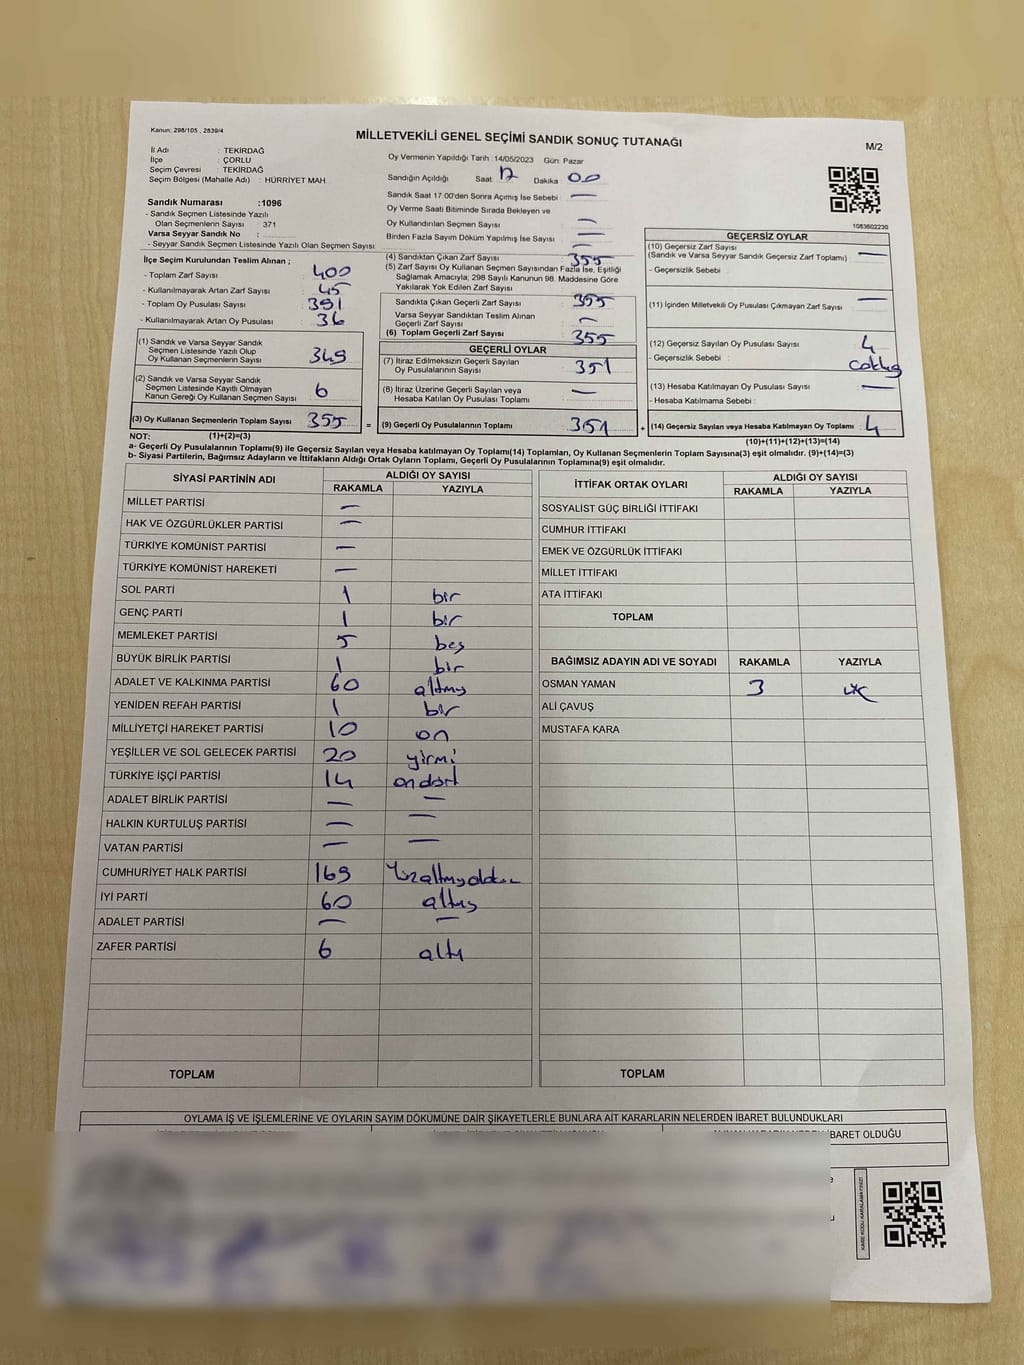 Kanun: 298/105 , 2839/4
MİLLETVEKİLİ GENEL SEÇİMİ SANDIK SONUÇ TUTANAĞI
M/2
İl Adı : TEKİRDAĞ
İlçe : ÇORLU
Seçim Çevresi : TEKİRDAĞ
Seçim Bölgesi (Mahalle Adı) : HÜRRİYET MAH.
Sandık Numarası :1096
- Sandık Seçmen Listesinde Yazılı
Olan Seçmenlerin Sayısı : 371
Varsa Seyyar Sandık No :
- Seyyar Sandık Seçmen Listesinde Yazılı Olan Seçmen Sayısı:
Oy Vermenin Yapıldığı Tarih :14/05/2023 Gün: Pazar
Sandığın Açıldığı Saat: 17 Dakika 00
Sandık Saat 17:00'den Sonra Açımış İse Sebebi : —
Oy Verme Saati Bitiminde Sırada Bekleyen ve
Oy Kullandırılan Seçmen Sayısı : —
Birden Fazla Sayım Döküm Yapılmış İse Sayısı : —
1083602230
İlçe Seçim Kurulundan Teslim Alınan ;
- Toplam Zarf Sayısı : 400
- Kullanılmayarak Artan Zarf Sayısı : 45
- Toplam Oy Pusulası Sayısı : 391
- Kullanılmayarak Artan Oy Pusulası : 36
(1) Sandık ve Varsa Seyyar Sandık
Seçmen Listesinde Yazılı Olup
Oy Kullanan Seçmenlerin Sayısı : 349
(2) Sandık ve Varsa Seyyar Sandık
Seçmen Listesinde Kayıtlı Olmayan
Kanun Gereği Oy Kullanan Seçmen Sayısı : 6
(3) Oy Kullanan Seçmenlerin Toplam Sayısı : 355 =
(4) Sandıktan Çıkan Zarf Sayısı : 355
(5) Zarf Sayısı Oy Kullanan Seçmen Sayısından Fazla İse, Eşitliği
Sağlamak Amacıyla, 298 Sayılı Kanunun 98. Maddesine Göre
Yakılarak Yok Edilen Zarf Sayısı : —
Sandıkta Çıkan Geçerli Zarf Sayısı : 355
Varsa Seyyar Sandıktan Teslim Alınan
Geçerli Zarf Sayısı : —
(6) Toplam Geçerli Zarf Sayısı : 355
GEÇERLİ OYLAR
(7) İtiraz Edilmeksizin Geçerli Sayılan
Oy Pusulalarının Sayısı : 351
(8) İtiraz Üzerine Geçerli Sayılan veya
Hesaba Katılan Oy Pusulası Toplamı : —
(9) Geçerli Oy Pusulalarının Toplamı : 351 +
GEÇERSİZ OYLAR
(10) Geçersiz Zarf Sayısı
(Sandık ve Varsa Seyyar Sandık Geçersiz Zarf Toplamı) : —
- Geçersizlik Sebebi :
(11) İçinden Milletvekili Oy Pusulası Çıkmayan Zarf Sayısı : —
(12) Geçersiz Sayılan Oy Pusulası Sayısı : 4
- Geçersizlik Sebebi :
(13) Hesaba Katılmayan Oy Pusulası Sayısı : —
- Hesaba Katılmama Sebebi :
(14) Geçersiz Sayılan veya Hesaba Katılmayan Oy Toplamı : 4
NOT: (1)+(2)=(3) (10)+(11)+(12)+(13)=(14)
a- Geçerli Oy Pusulalarının Toplamı(9) ile Geçersiz Sayılan veya Hesaba katılmayan Oy Toplamı(14) Toplamları, Oy Kullanan Seçmenlerin Toplam Sayısına(3) eşit olmalıdır. (9)+(14)=(3)
b- Siyasi Partilerin, Bağımsız Adayların ve İttifakların Aldığı Oyların Toplamı, Geçerli Oy Pusulalarının Toplamına(9) eşit olmalıdır.
SİYASİ PARTİNİN ADI ALDIĞI OY SAYISI
RAKAMLA YAZIYLA
MİLLET PARTİSİ —
HAK VE ÖZGÜRLÜKLER PARTİSİ —
TÜRKİYE KOMÜNİST PARTİSİ —
TÜRKİYE KOMÜNİST HAREKETİ —
SOL PARTİ 1 bir
GENÇ PARTİ 1 bir
MEMLEKET PARTİSİ 5 beş
BÜYÜK BİRLİK PARTİSİ 1 bir
ADALET VE KALKINMA PARTİSİ 60 altmış
YENİDEN REFAH PARTİSİ 1 bir
MİLLİYETÇİ HAREKET PARTİSİ 10 on
YEŞİLLER VE SOL GELECEK PARTİSİ 20 yirmi
TÜRKİYE İŞÇİ PARTİSİ 14 ondört
ADALET BİRLİK PARTİSİ — —
HALKIN KURTULUŞ PARTİSİ — —
VATAN PARTİSİ — —
CUMHURİYET HALK PARTİSİ 169 Yüzaltmışdokuz
İYİ PARTİ 60 altmış
ADALET PARTİSİ — —
ZAFER PARTİSİ 6 altı
TOPLAM
İTTİFAK ORTAK OYLARI ALDIĞI OY SAYISI
RAKAMLA YAZIYLA
SOSYALİST GÜÇ BİRLİĞİ İTTİFAKI
CUMHUR İTTİFAKI
EMEK VE ÖZGÜRLÜK İTTİFAKI
MİLLET İTTİFAKI
ATA İTTİFAKI
TOPLAM
BAĞIMSIZ ADAYIN ADI VE SOYADI RAKAMLA YAZIYLA
OSMAN YAMAN 3 üç
ALİ ÇAVUŞ
MUSTAFA KARA
TOPLAM
OYLAMA İŞ VE İŞLEMLERİNE VE OYLARIN SAYIM DÖKÜMÜNE DAİR ŞİKAYETLERLE BUNLARA AİT KARARLARIN NELERDEN İBARET BULUNDUKLARI
İBARET OLDUĞU
KARE KODU KARALAMAYINIZ!